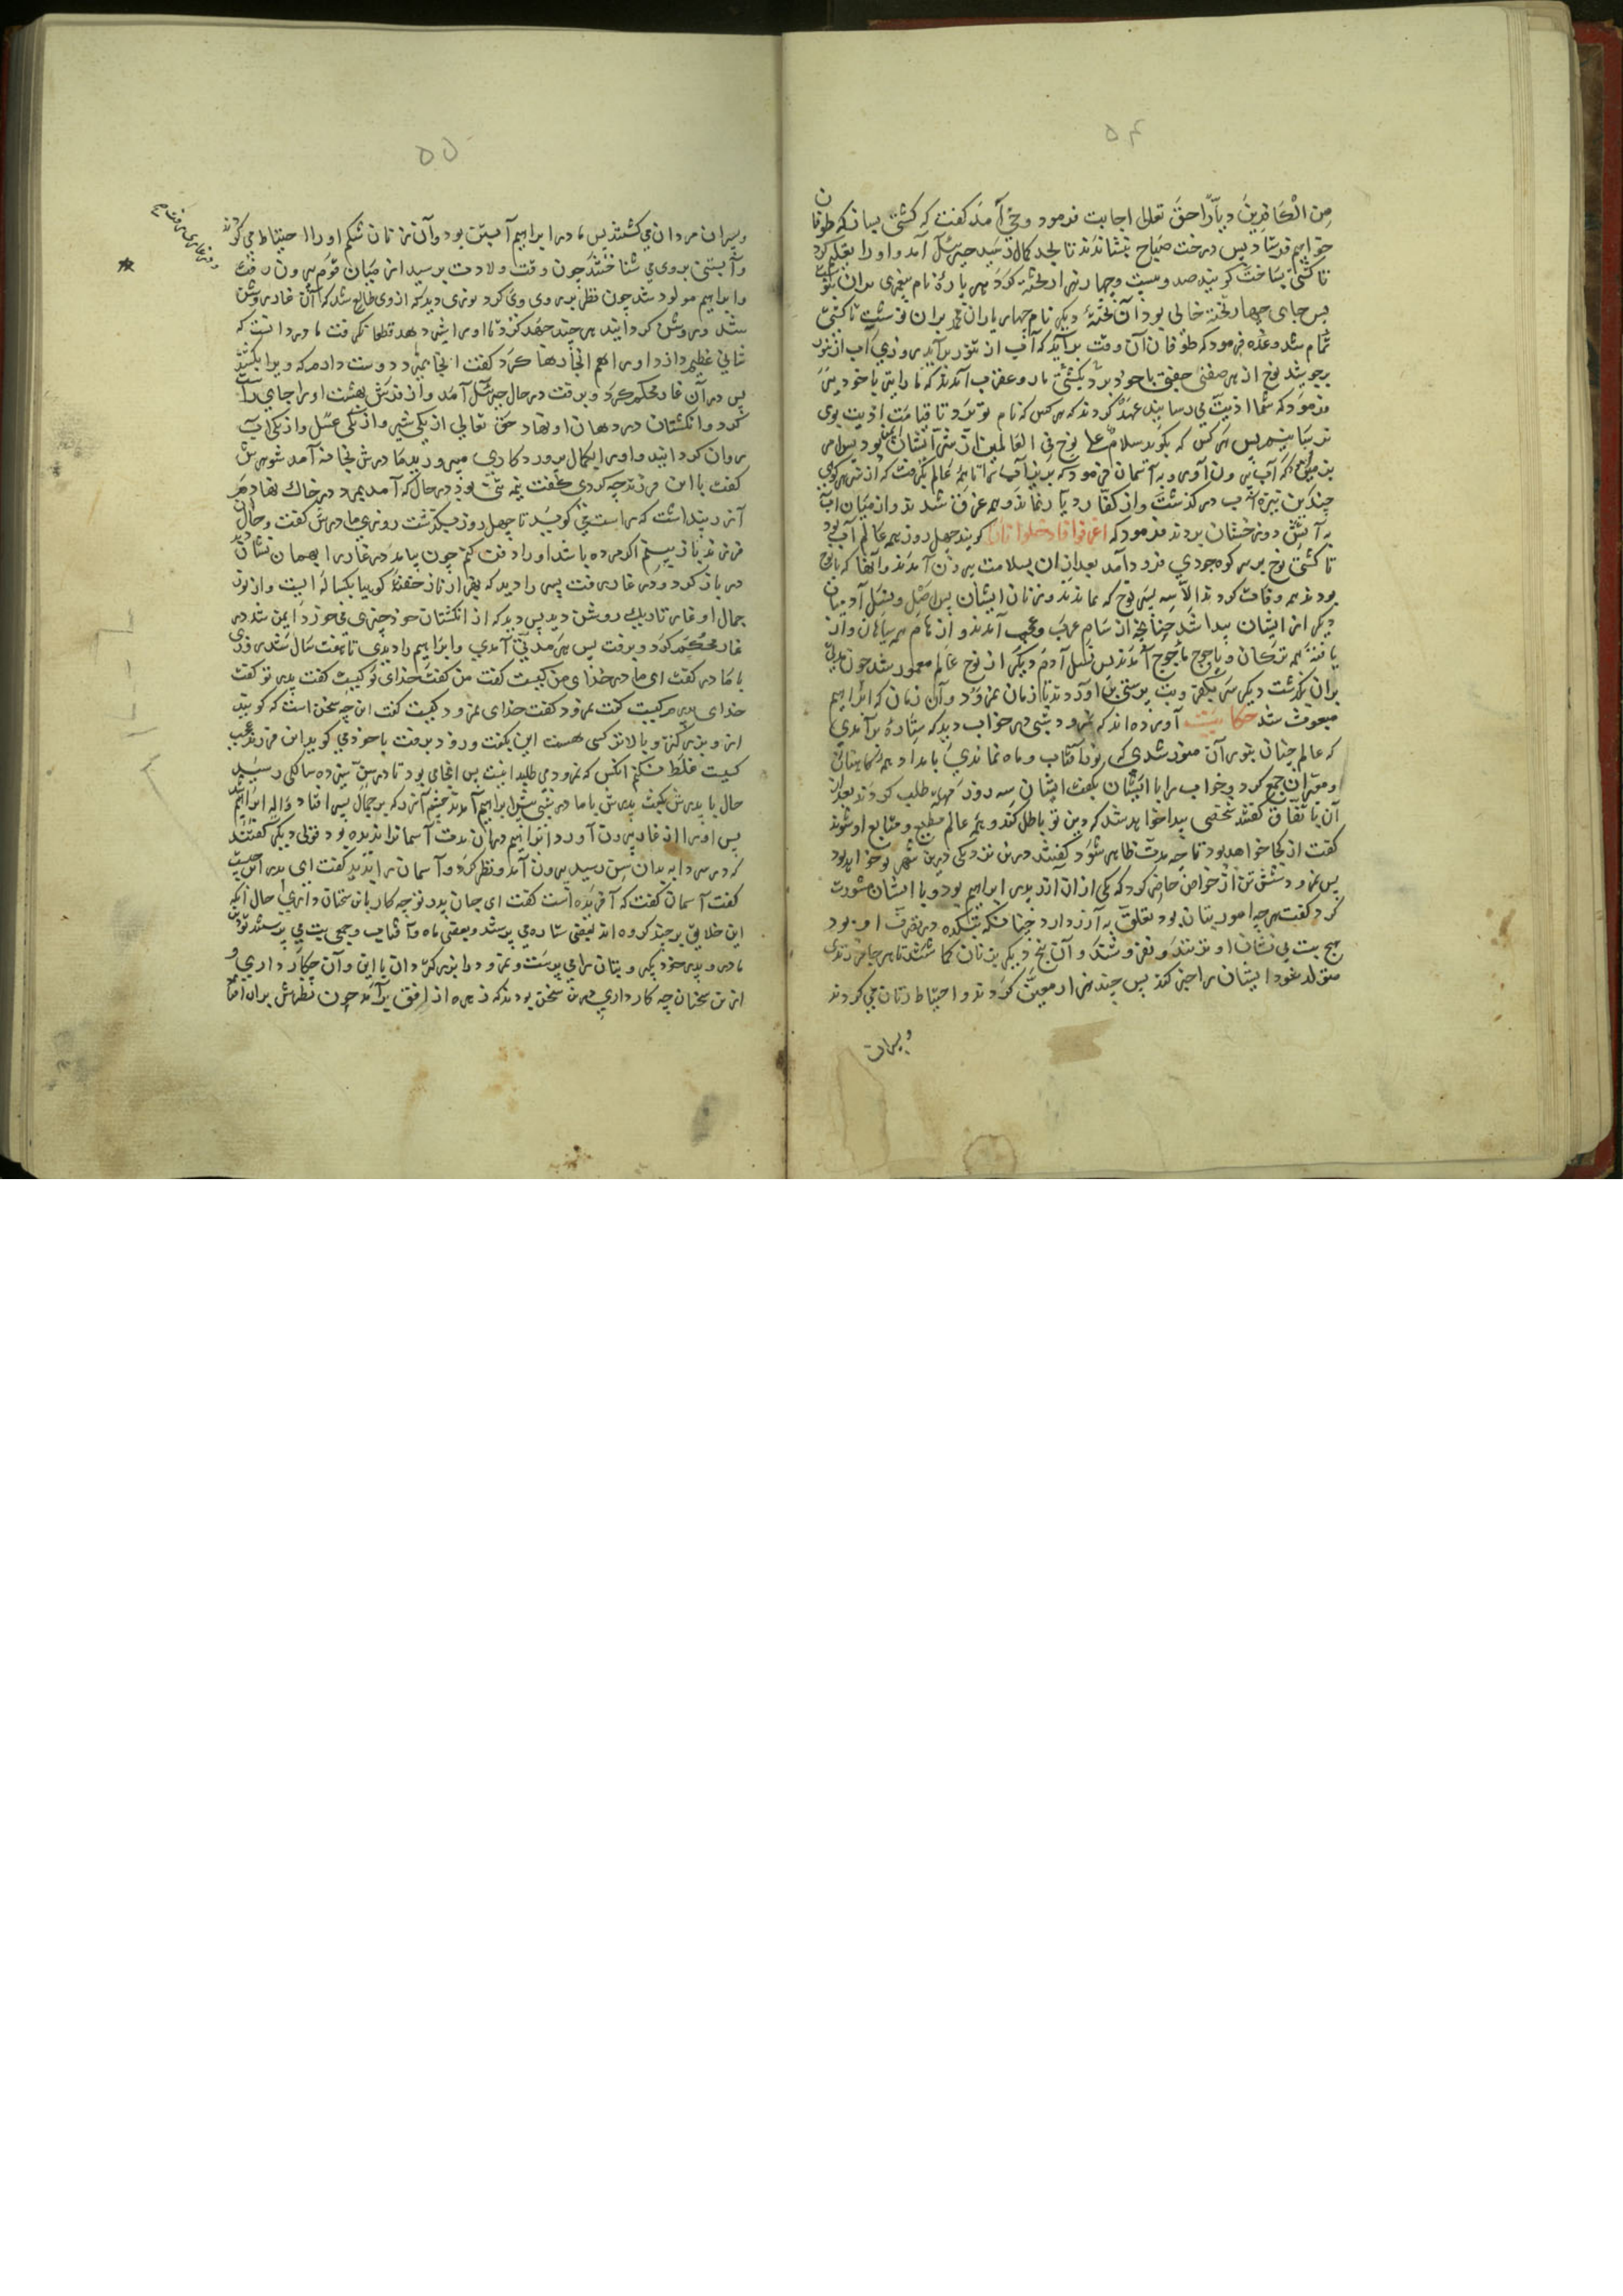 ۵۴
من الکافرین دیارا حق تعالی اجابت فرمود وحی آمد کفت که کشتی بساز که طوفان
خواهیم فرستاد پس درخت صباح بنشاندند تا بحد کمال رسید جبرئیل آمد و اورا تعلیم کرد
تا کشتی بساخت کویند صد و بیست و چهار هزار تخته کرد هر پاره نام پیغمبری بران بنوشت
پس جای چهار تخته خالی بود آن تخته دیکر نام چهار یاران محمد بران نوشت تا کشتی
تمام شد وعده فرمود که طوفان آن وقت برآید که آب از تنور برآید روزی آب از تنور
بجوشید نوح از هر صفتی جفتی با خود برد بکشتی مار و عقرب آمدند که مارا نیز با خود ببر
فرمود که شما اذیت می رسانید عهد کردند که هر کس که نام تو برد تا قیامت اذیت بوی
نرسانیم پس هر کس که بکوید سلام علی نوح فی العالمین از شر ایشان ایمن بود پس امر
بزمین که آب بیرون آور و به آسمان فرمود که بریز آب را تا همه عالم بکرفت که از سر هر کوهی
چندین نیزه آب در کذشت و از کفار دیار نماند و همه غرق شدند و از میان آب
به آتش دوزخشان بردند فرمود که اغرقوا فادخلوا نارا کویند چهل روز همه عالم آب بود
تا کشتی نوح بر سر کوه جودی فرود آمد بعد ازان بسلامت بیرون آمدند و آنها که با نوح
بودند همه وفات کردند الا سه پسر نوح که نماندند و زنان ایشان پس اصل و نسل آدمیان
دیکر از ایشان پیدا شد چنانچه از سام عرب و عجم آمدند و از حام همه سیاهان و از
یافث همه ترکان و یاجوج ماجوج آمدند پس نسل آدم دیکر از نوح عالم معمور شد چون مدتی
بران بکذشت دیکر سر بکفر و بت پرستی بر آوردند تا زمان نمرود و آن زمان که ابراهیم
مبعوث شد حکایت آورده اند که نمرود شبی در خواب دید که ستاره برآمدی
که عالم چنان بنور آن منور شدی که نور آفتاب و ماه نماندی بامداد همه کاهنان
و معبران جمع کرد و خواب را با ایشان بکفت ایشان سه روز مهلت طلب کردند بعد از
آن باتفاق کفتند شخصی پیدا خواهد شد که دین تو باطل کند و همه عالم مطیع و متابع او شوند
کفت از کجا خواهد بود تا چه مدت ظاهر شود کفتند درین نزدیکی درین شهر تو خواهد بود
پس نمرود شش تن از خواص حاضر کرد که یکی ازان آزر پدر ابراهیم بود و با ایشان مشورت
کرد کفت هر چه امور بتان بود تعلق به آزر دارد چنانکه بتکده در تصرف او بود
هیچ بت بی نشان او نزنند و نفروشند و آن پنج دیکر بزنان کماشتند تا هر جا فرزندی
متولد شود ایشان را خبر کنند پس چند هزار معین کردند و احتیاط زنان می کردند
وپسران
۵۵
وپسران مردان می کشتند پس مادر ابراهیم آبستن بود و آن زنان شکم او را احتیاط می کردند
و آبستنی بروی می شناختند چون وقت ولادت برسید از میان قوم بیرون رفت
و ابراهیم مولود شد چون نظر بر روی وی کرد نوری دید که ازوی طالع شد که آن غار روشن
شد و روشن کردانید هر چند جهد کرد تا اورا شیر دهد قطعا نکرفت مادر دانست که
شانی عظیم دارد اورا هم انجا رها کرد کفت انجا بمیرد دوست دارم که ویرا بکشند
پس در آن غار محکم کرد و برفت در حال جبرئیل آمد و از فرش بهشت اورا جای راست
کرد و انکشتان در دهان او نهاد حق تعالی از یکی شیر و از یکی عسل و از یکی آب
روان کردانید و اورا بکمال پرورد کاری می پرورید مادرش بخانه آمد شوهرش
کفت با این فرزند چه کردی کفت نیم تنی بود در حال که آمد بمرد در خاک نهادم
آزر پنداشت که راست می کوید تا چهل روز بکذشت روزی مادرش کفت وحال
فرزند باز بینم اکر مرده باشد اورا دفن کنم چون بیامد در غار را بهمان نشان دید
در باز کرد و در غار رفت پسر را دید که بقرار ناز خفته کوییا یکساله است و از نور
جمال او غار تاریک روشن دید پس دید که از انکشتان خود چیزی می خورد ایمن شد در
غار محکم کرد و برفت پس هر مدتی آمدی و ابراهیم را دیدی تا هفت سال شد روزی
با مادر کفت ای مادر خدای من کیست کفت من کفت خدای تو کیست کفت پدر تو کفت
خدای پدرم کیست کفت نمرود کفت خدای نمرود کیست کفت این چه سخن است که کویند
از و بزرکتر و بالاتر کسی هست این بکفت و زود برفت با خود می کوید این فرزند عجب
کیست غلط نکنم انکس که نمرود می طلبد اینست پس انجای بود تا در سن سیزده سالکی رسید
حال با پدرش بکفت پدرش با مادر شبی پیش ابراهیم آمدند چشم آزر که بر جمال پسر افتاد واله ابراهیم شد
پس اورا از غار بیرون آورد ابراهیم دران مدت آسمان ندیده بود و بقولی دیکر کفتند
که در سردابه بدان سن رسید بیرون آمد و نظر کرد و آسمان را بدید کفت ای پدر این چیست
کفت آسمان کفت که آفریده است کفت ای جان پدر تو چه کار باین سخنان داری حال آنکه
این خلایق بر چند کروه اند بعضی ستاره می پرستند و بعضی ماه و آفتاب و جمعی بت می پرستند تو دین
مادر و پدر خود بکیر و بتان را می پرست و نمرود را بزرک دان با این و آن چکار داری و
ازین سخنان چه کار داری درین سخن بودند که زهره از افق برآمد چون نظرش بران افتاد